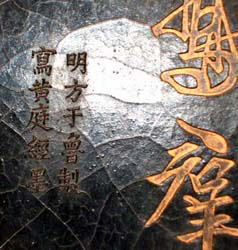 明方于魯製
寫黃庭經墨